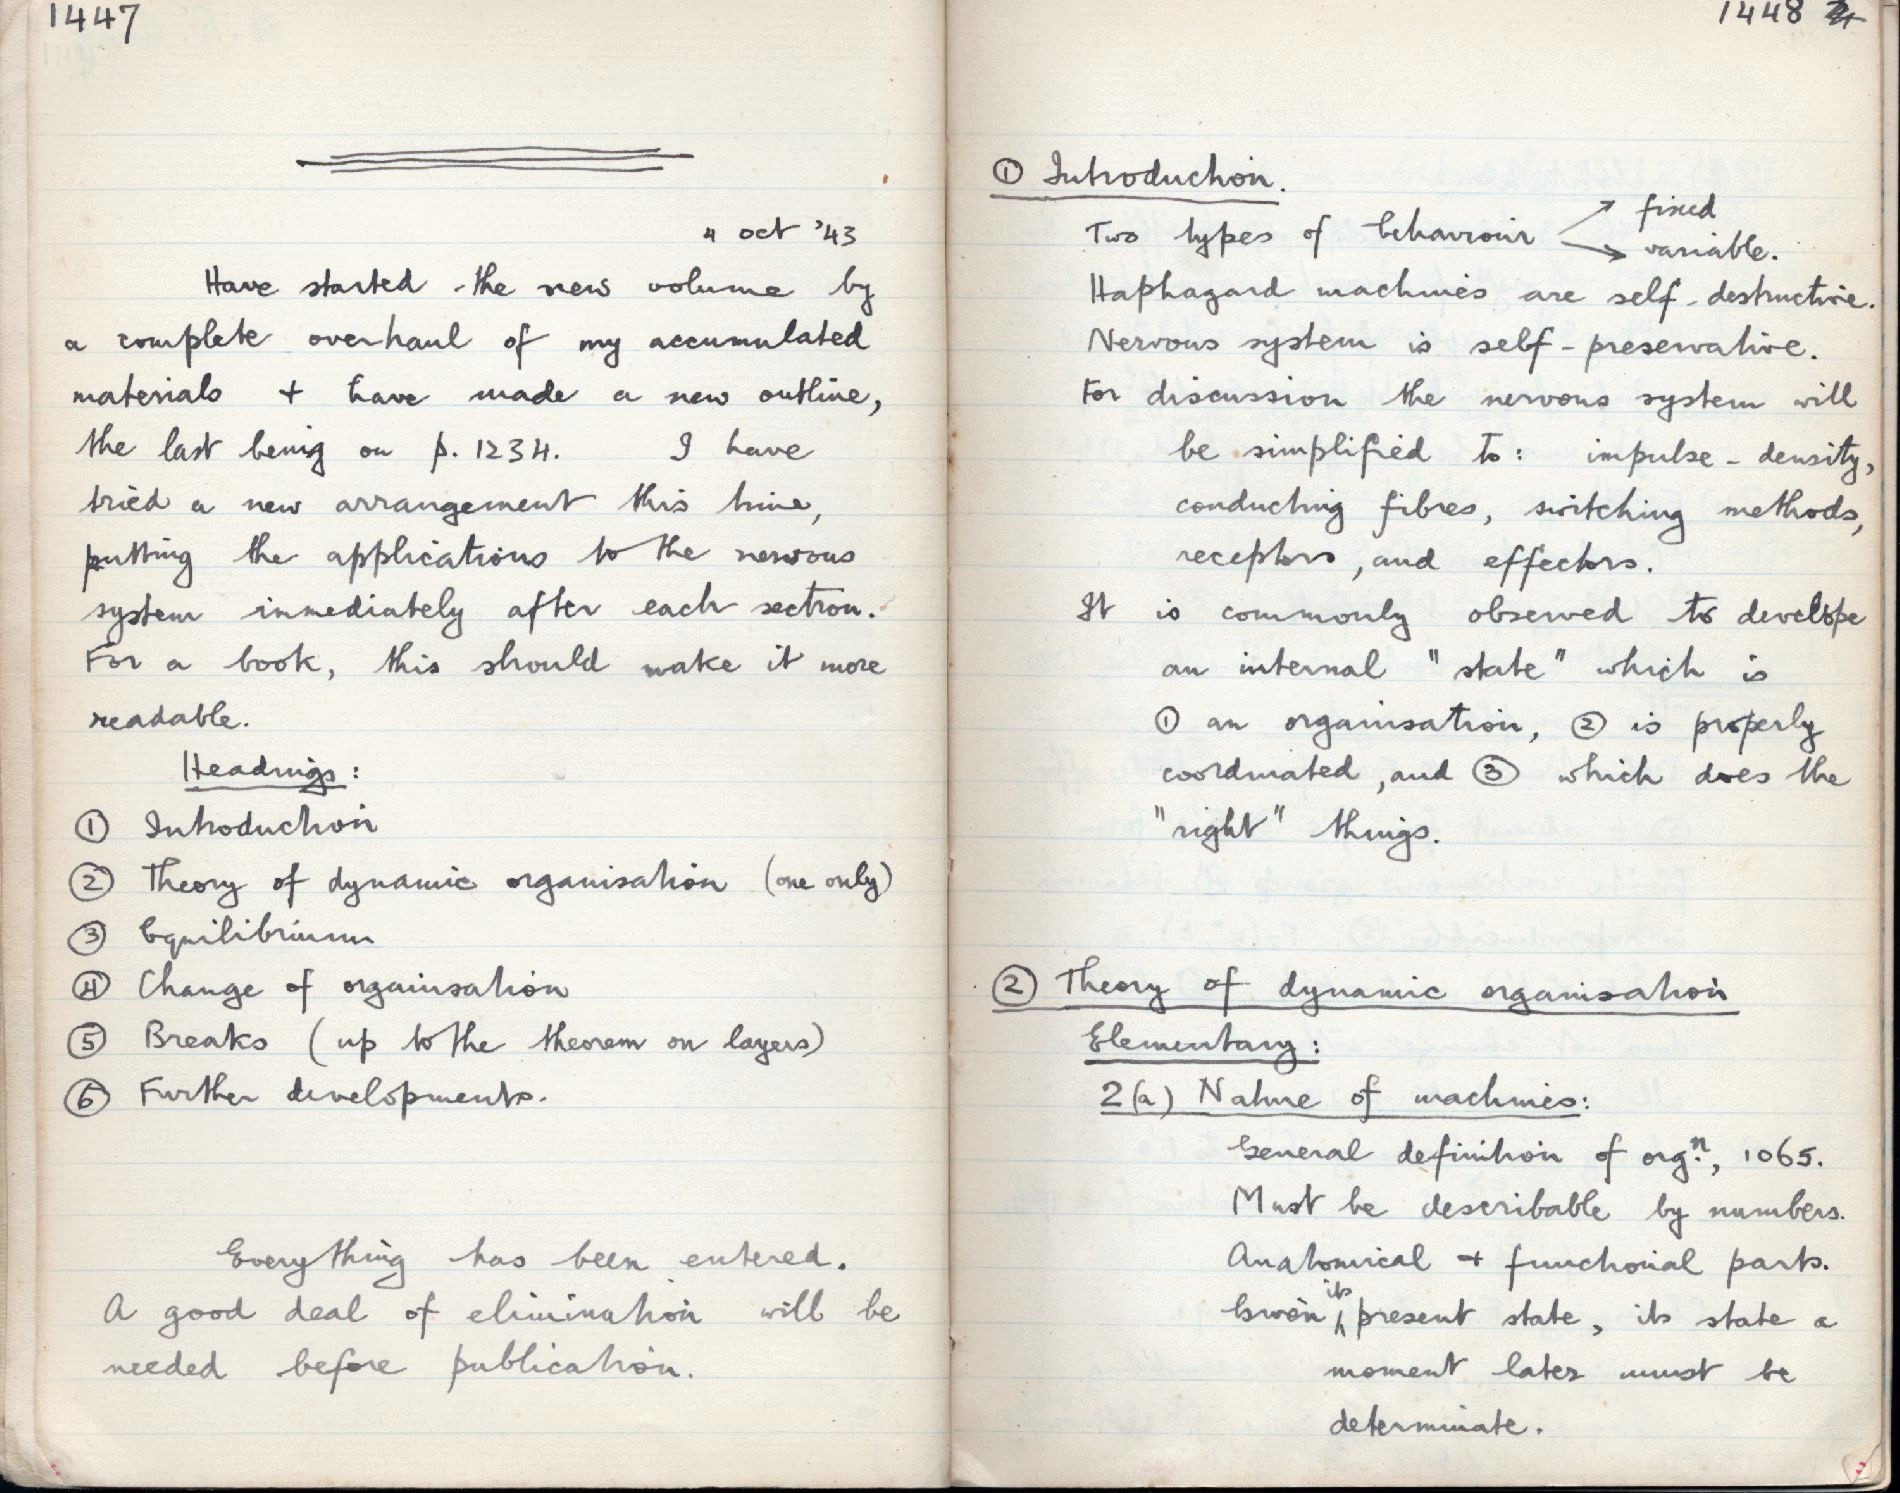 1447
4 Oct '43
Have started the new volume by
a complete overhaul of my accumulated
materials + have made a new outline,
the last being on p. 1234. I have
tried a new arrangement this time,
putting the applications to the nervous
system immediately after each section.
For a book, this should make it more
readable.
Headings:
① Introduction
② Theory of dynamic organisation (one only)
③ Equilibrium
④ Change of organisation
⑤ Breaks (up to the theorem on layers)
⑥ Further developments.
Everything has been entered.
A good deal of elimination will be
needed before publication.
1448
① Introduction.
Two types of behaviour → fixed
→ variable.
Haphazard machines are self-destructive.
Nervous system is self-preservative.
For discussion the nervous system will
be simplified to: impulse-density,
conducting fibres, switching methods,
receptors, and effectors.
It is commonly observed to develope
an internal "state" which is
① an organisation, ② is properly
coordinated, and ③ which does the
"right" things.
② Theory of dynamic organisation
Elementary:
2(a) Nature of machines:
General definition of org.ⁿ, 1065.
Must be describable by numbers.
Anatomical + functional parts.
Given its present state, its state a
moment later must be
determinate.